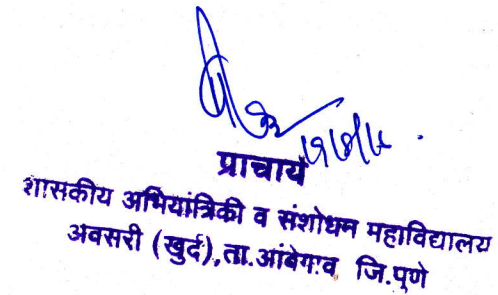 प्राचार्य
शासकीय अभियांत्रिकी व संशोधन महाविद्यालय
अवसरी (खुर्द),ता.आंबेगाव जि.पुणे